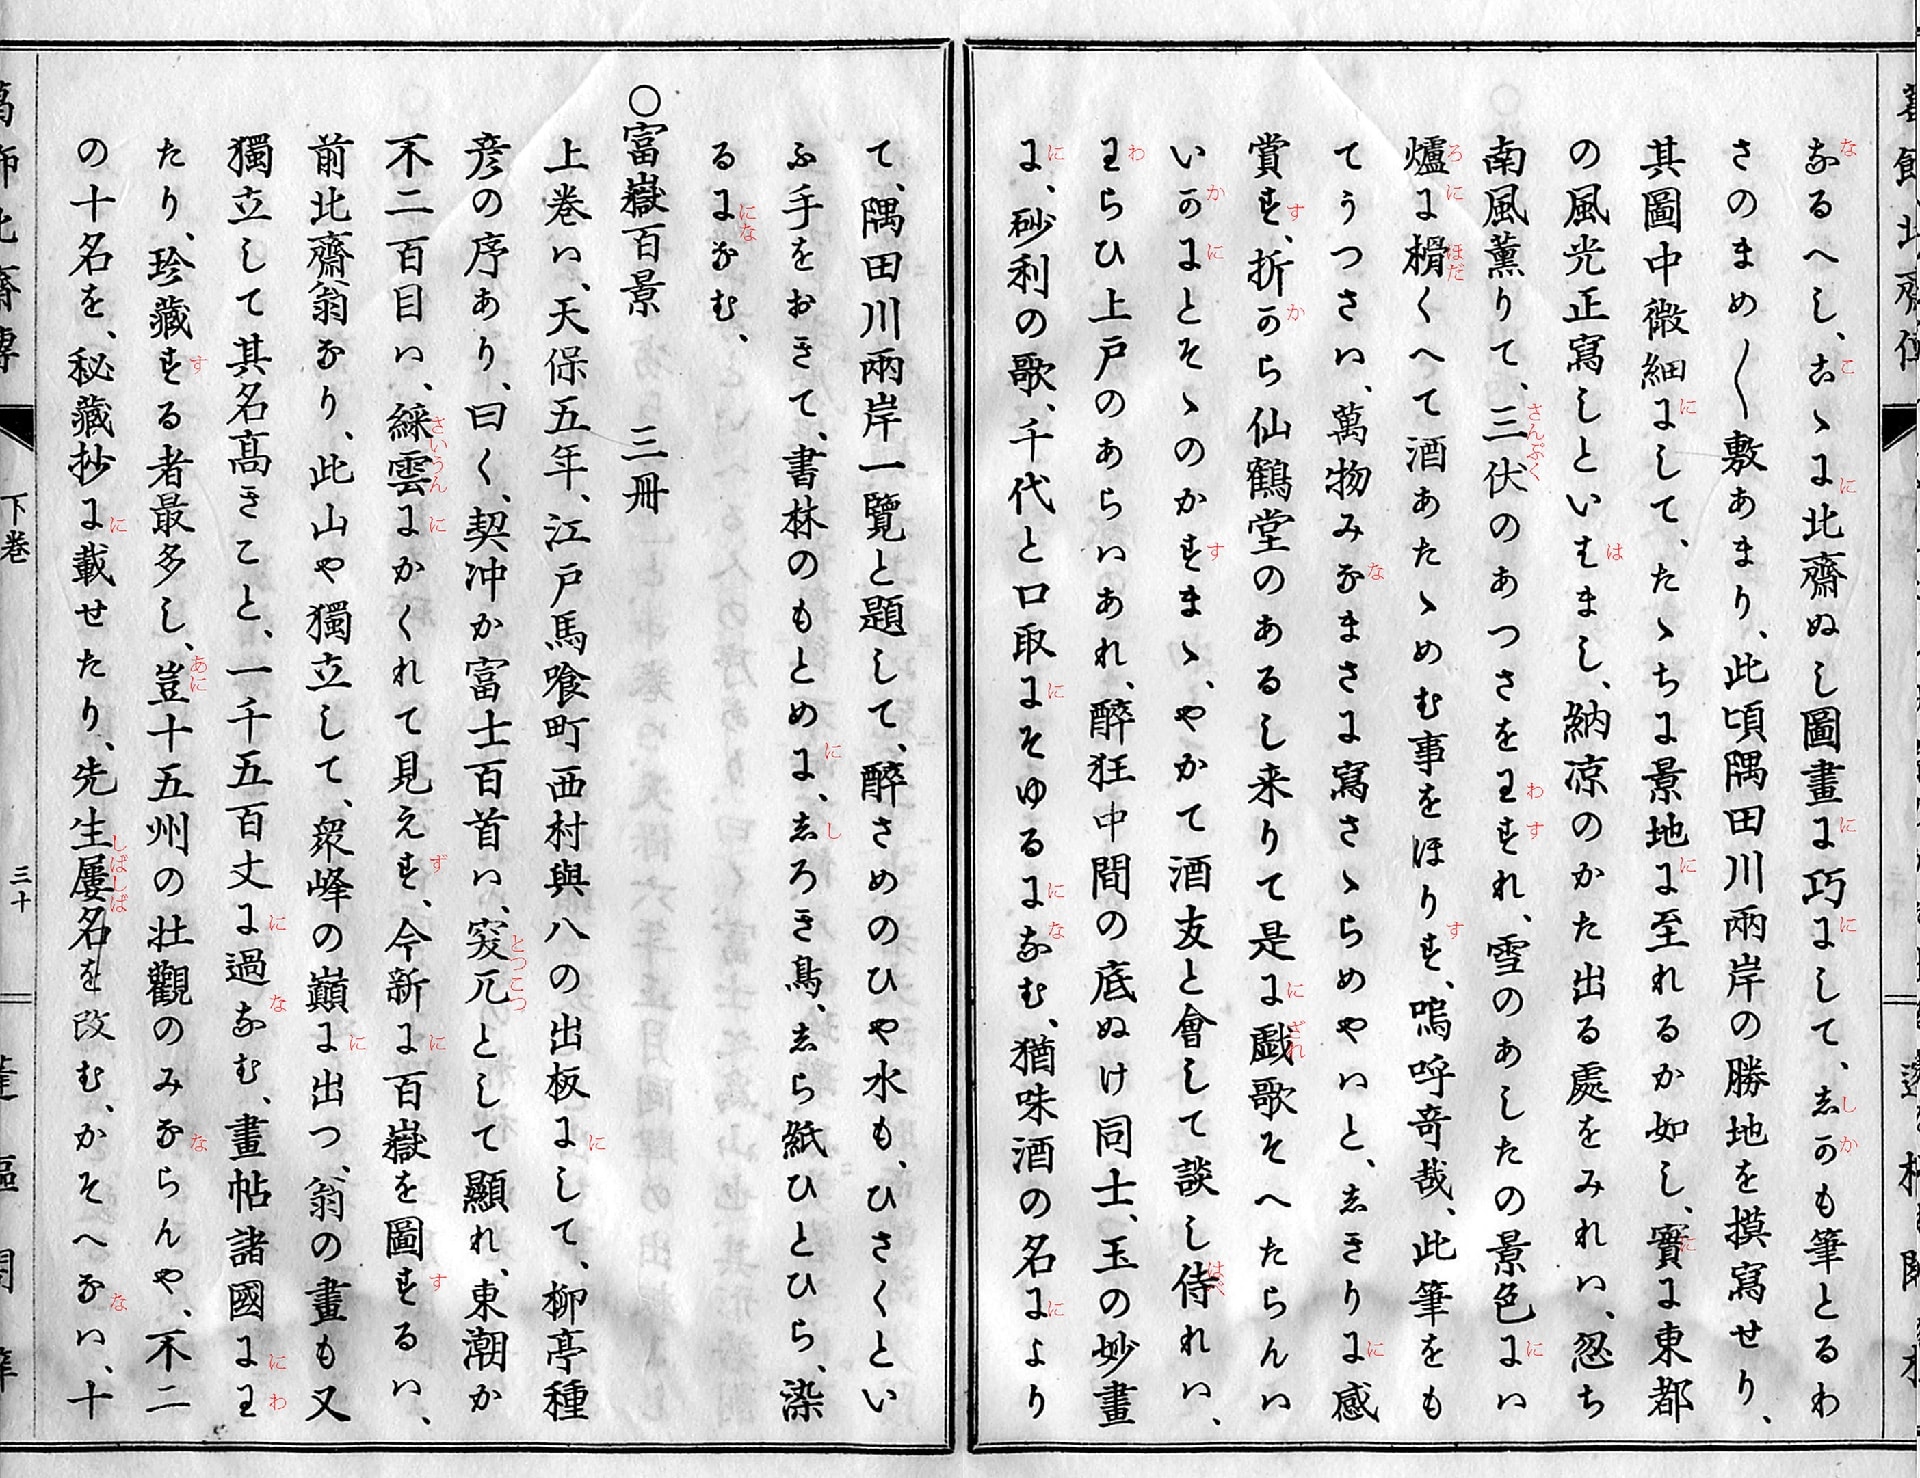 なるへし、こゝに北齋ぬし圖畫に巧にして、しかも筆とるわ
さのまめ〱敷あまり、此頃隅田川兩岸の勝地を摸寫せり、
其圖中微細にして、たゝちに景地に至れるか如し、實に東都
の風光正寫しといはまし、納凉のかた出る處をみれハ、忽ち
南風薫りて、三伏のあつさをわすれ、雪のあしたの景色にハ
爐に榾くへて酒あたゝめむ事をほりす、嗚呼奇哉、此筆をも
てうつさハ、萬物みなまさに寫さゝらめやハと、しきりに感
賞す、折から仙鶴堂のあるし来りて是に戯歌そへたらんハ
いかにとそゝのかすまゝ、やかて酒友と會して談し侍れハ、
わらひ上戸のあらハあれ、醉狂中間の底ぬけ同士、玉の妙畫
に、砂利の歌、千代と口取にそゆるになむ、猶味酒の名により
て、隅田川兩岸一覽と題して、醉さめのひや水も、ひさくとい
ふ手をおきて、書林のもとめに、しろき鳥、しら紙ひとひら、染
るになむ、
〇富嶽百景　三冊
上巻ハ、天保五年、江戸馬喰町西村與八の出板にして、柳亭種
彦の序あり、曰く、契冲か富士百首ハ、突兀として顯れ、東潮か
不二百目ハ、綵雲にかくれて見えず、今新に百嶽を圖するハ、
前北齋翁なり、此山や獨立して、衆峰の巓に出つ、翁の畫も又
獨立して其名髙きこと、一千五百丈に過なむ、畫帖諸國にわ
たり、珍藏する者最多し、豈十五州の壮觀のみならんや、不二
の十名を、秘藏抄に載せたり、先生屢名を改む、かそへなハ、十
下巻
三十